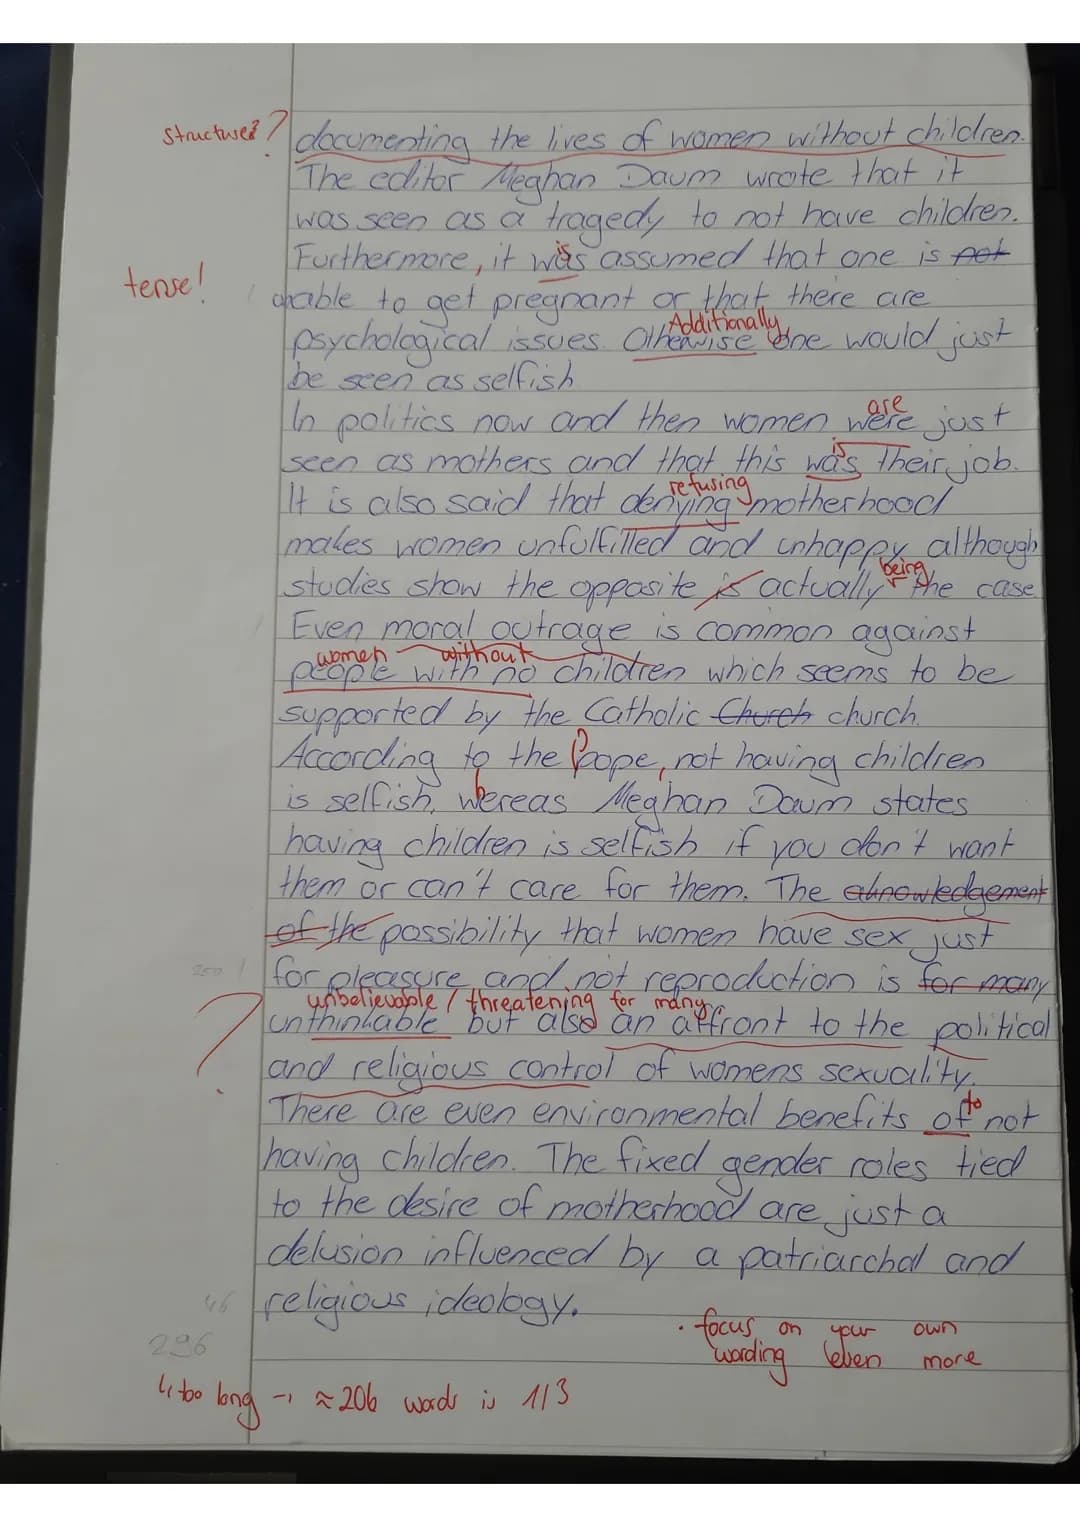 structure? ? documenting the lives of women without children.
The editor Meghan Daum wrote that it
was seen as a tragedy to not have children.
is
tense! Furthermore, it was assumed that one is not
unable to get pregnant or that there are
Additionally,
psychological issues. Otherwise one would just
be seen as selfish
are
In politics now and then women were just
is
seen as mothers and that this was their job.
refusing
It is also said that denying motherhood
makes women unfulfilled and unhappy although
being
studies show the opposite is actually the case
Even moral outrage is common against
women without
people with no children which seems to be
supported by the Catholic Church church.
According to the Pope, not having children
h
is selfish, wereas Meghan Daum states
having children is selfish if you don't want
them or can't care for them. The aknowledgement
of the possibility that women have sex just
250 for pleasure and not reproduction is for many
unbelievable / threatening for many
? unthinkable but also an affront to the political
and religious control of womens sexuality.
to
There are even environmental benefits of not
having children. The fixed gender roles tied
to the desire of motherhood are just a
delusion influenced by a patriarchal and
46 religious ideology.
296
· focus on your own
wording even more
↳ too long → ≈206 words is 1/3